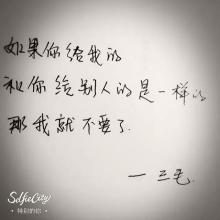 如果你给我的
和你给别人的是一样的
那我就不要了.
—三毛.
SelfieCity
·特别的你·